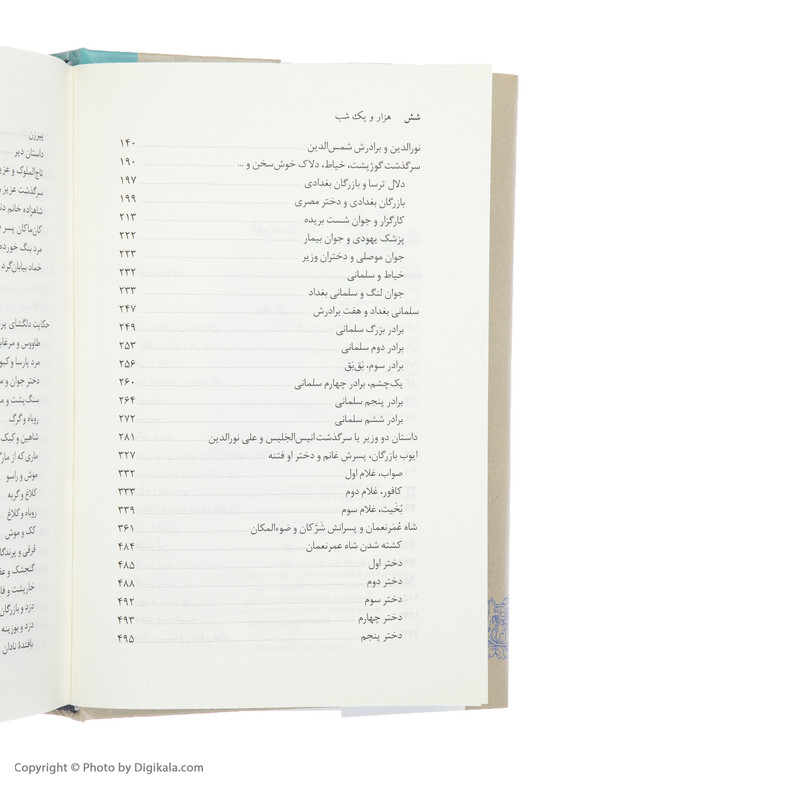 شش هزار و یک شب
نورالدین و برادرش شمس‌الدین ۱۴۰
سرگذشت گوژپشت، خیاط، دلاک خوش‌سخن و ... ۱۹۰
دلال ترسا و بازرگان بغدادی ۱۹۷
بازرگان بغدادی و دختر مصری ۱۹۹
کارگزار و جوان شست بریده ۲۱۳
پزشک یهودی و جوان بیمار ۲۲۲
جوان موصلی و دختران وزیر ۲۲۳
خیاط و سلمانی ۲۳۲
جوان لنگ و سلمانی بغداد ۲۳۳
سلمانی بغداد و هفت برادرش ۲۴۷
برادر بزرگ سلمانی ۲۴۹
برادر دوم سلمانی ۲۵۳
برادر سوم، بَق‌بَق ۲۵۶
یک‌چشم، برادر چهارم سلمانی ۲۶۰
برادر پنجم سلمانی ۲۶۴
برادر ششم سلمانی ۲۷۲
داستان دو وزیر یا سرگذشت انیس‌الجَلیس و علی نورالدین ۲۸۱
ایوب بازرگان، پسرش غانم و دختر او فتنه ۳۲۷
صواب، غلام اول ۳۳۲
کافور، غلام دوم ۳۳۳
بُخَیت، غلام سوم ۳۳۹
شاه عُمَرنعمان و پسرانش شَرَّکان و ضوءالمکان ۳۶۱
کشته شدن شاه عمرنعمان ۴۸۴
دختر اول ۴۸۵
دختر دوم ۴۸۸
دختر سوم ۴۹۲
دختر چهارم ۴۹۳
دختر پنجم ۴۹۵
پیرزن
داستان دیر
تاج‌الملوک و
سرگذشت عزیز و
شاهزاده خانم
کان‌ماکان پسر
مرد بنگ خورده
حماد بیابان‌گرد
حکایت دلگشای
طاووس و
مرد پارسا و
دختر جوان و
سنگ‌پشت و
روباه و گرگ
شاهین و کبک
ماری که از
موش و راسو
کلاغ و گربه
روباه و کلاغ
کک و موش
قرقی و
گنجشک و
خارپشت و
دزد و بازرگان
دزد و بوزینه
بافندهٔ نادان
Copyright © Photo by Digikala.com